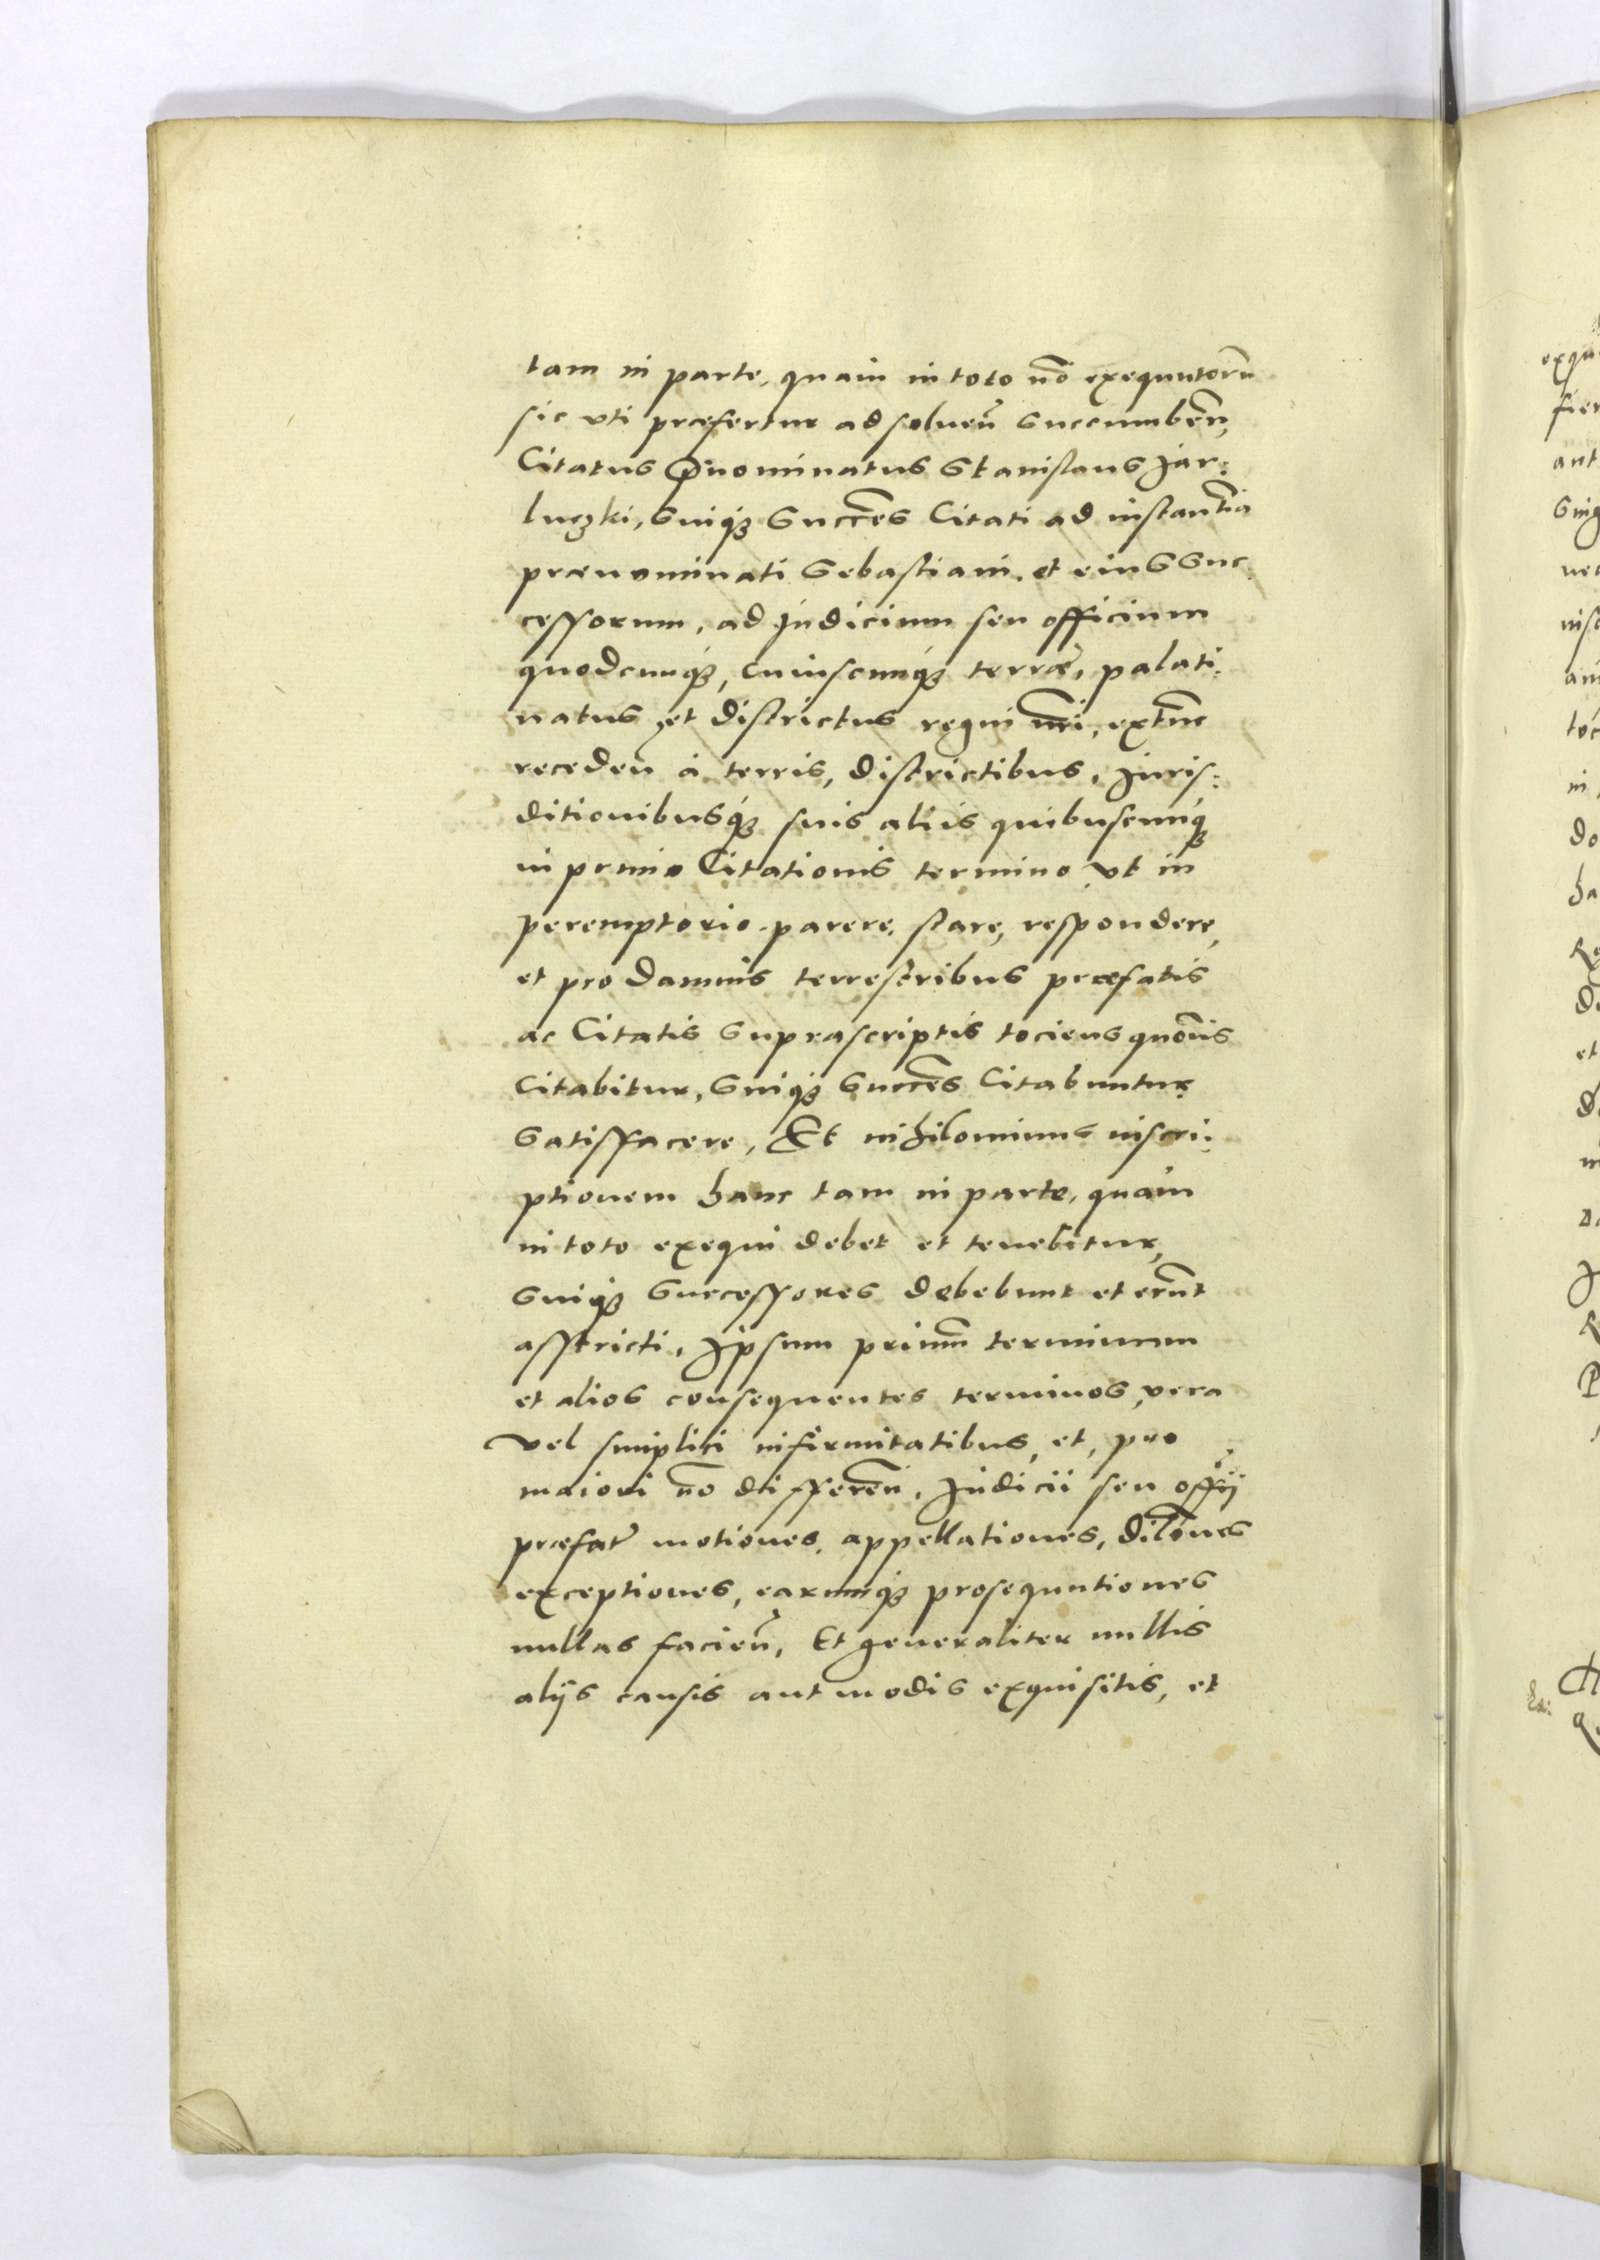 tam in parte, quam in toto nō exequutorū
sic vti præfertur ad soluen̄ succumben̄,
Citatus Prænominatus Stanislaus Jar:
luczki, Suiq́ꝫ Succ̄es Citati ad instantiā
prænominati Sebastiani, et eius Suc
cessorum, ad Judicium seu officium
quodcunq́ꝫ, cuiuscunq́ꝫ terræ, palati:
natus, et districtus regni nr̄i, extūc
receden̄ à terris, districtibus, Juris:
ditionibusq́ꝫ suis aliis quibuscunq́ꝫ
in primo Citationis termino, vt in
peremptorio parere, stare, respondere,
et pro damnis terrestribus præfatis
ac Citatis suprascriptis tociens quoc̄ns
Citabitur, Suiq́ꝫ Succ̄es Citabuntur
Satisfacere, Et nihilominus inscri:
ptionem hanc tam in parte, quàm
in toto exequi debet et tenebitur,
Suiq́ꝫ Successores debebunt et erūt
asstricti, Ipsum primū terminum
et alios consequentes terminos, vera
vel simplici infirmitatibus, et, pro
maiori nō differen̄, Judicii seu off̄ij
præfat̄ motiones, appellationes, dilōnes
exceptiones, earumq́ꝫ prosequutiones
nullas facien̄, Et generaliter nullis
alijs causis aut modis exquisitis, et